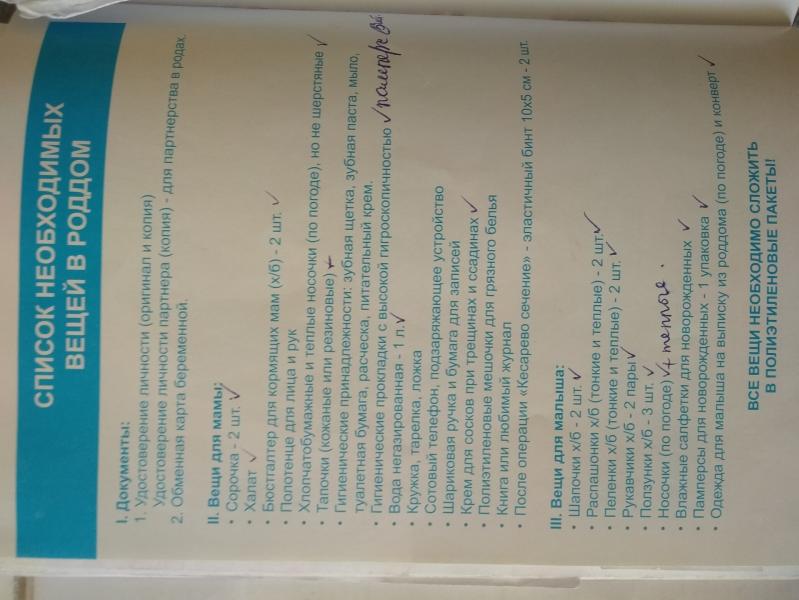 СПИСОК НЕОБХОДИМЫХ
ВЕЩЕЙ В РОДДОМ
I. Документы:
1. Удостоверение личности (оригинал и копия)
Удостоверение личности партнера (копия) - для партнерства в родах.
2. Обменная карта беременной.
II. Вещи для мамы:
• Сорочка - 2 шт. ✓
• Халат ✓
• Бюстгалтер для кормящих мам (х/б) - 2 шт. ✓
• Полотенце для лица и рук
• Хлопчатобумажные и теплые носочки (по погоде), но не шерстяные ✓
• Тапочки (кожаные или резиновые) +
• Гигиенические принадлежности: зубная щетка, зубная паста, мыло,
туалетная бумага, расческа, питательный крем.
• Гигиенические прокладки с высокой гигроскопичностью ✓
• Вода негазированная - 1 л. ✓
• Кружка, тарелка, ложка
• Сотовый телефон, подзаряжающее устройство
• Шариковая ручка и бумага для записей
• Крем для сосков при трещинах и ссадинах ✓
• Полиэтиленовые мешочки для грязного белья
• Книга или любимый журнал
• После операции «Кесарево сечение» - эластичный бинт 10х5 см - 2 шт.
III. Вещи для малыша:
• Шапочки х/б - 2 шт. ✓
• Распашонки х/б (тонкие и теплые) - 2 шт. ✓
• Пеленки х/б (тонкие и теплые) - 2 шт. ✓
• Рукавчики х/б - 2 пары ✓
• Ползунки х/б - 3 шт. ✓
• Носочки (по погоде) ✓ + теплые.
• Влажные салфетки для новорожденных ✓
• Памперсы для новорожденных - 1 упаковка ✓
• Одежда для малыша на выписку из роддома (по погоде) и конверт ✓
ВСЕ ВЕЩИ НЕОБХОДИМО СЛОЖИТЬ
В ПОЛИЭТИЛЕНОВЫЕ ПАКЕТЫ!